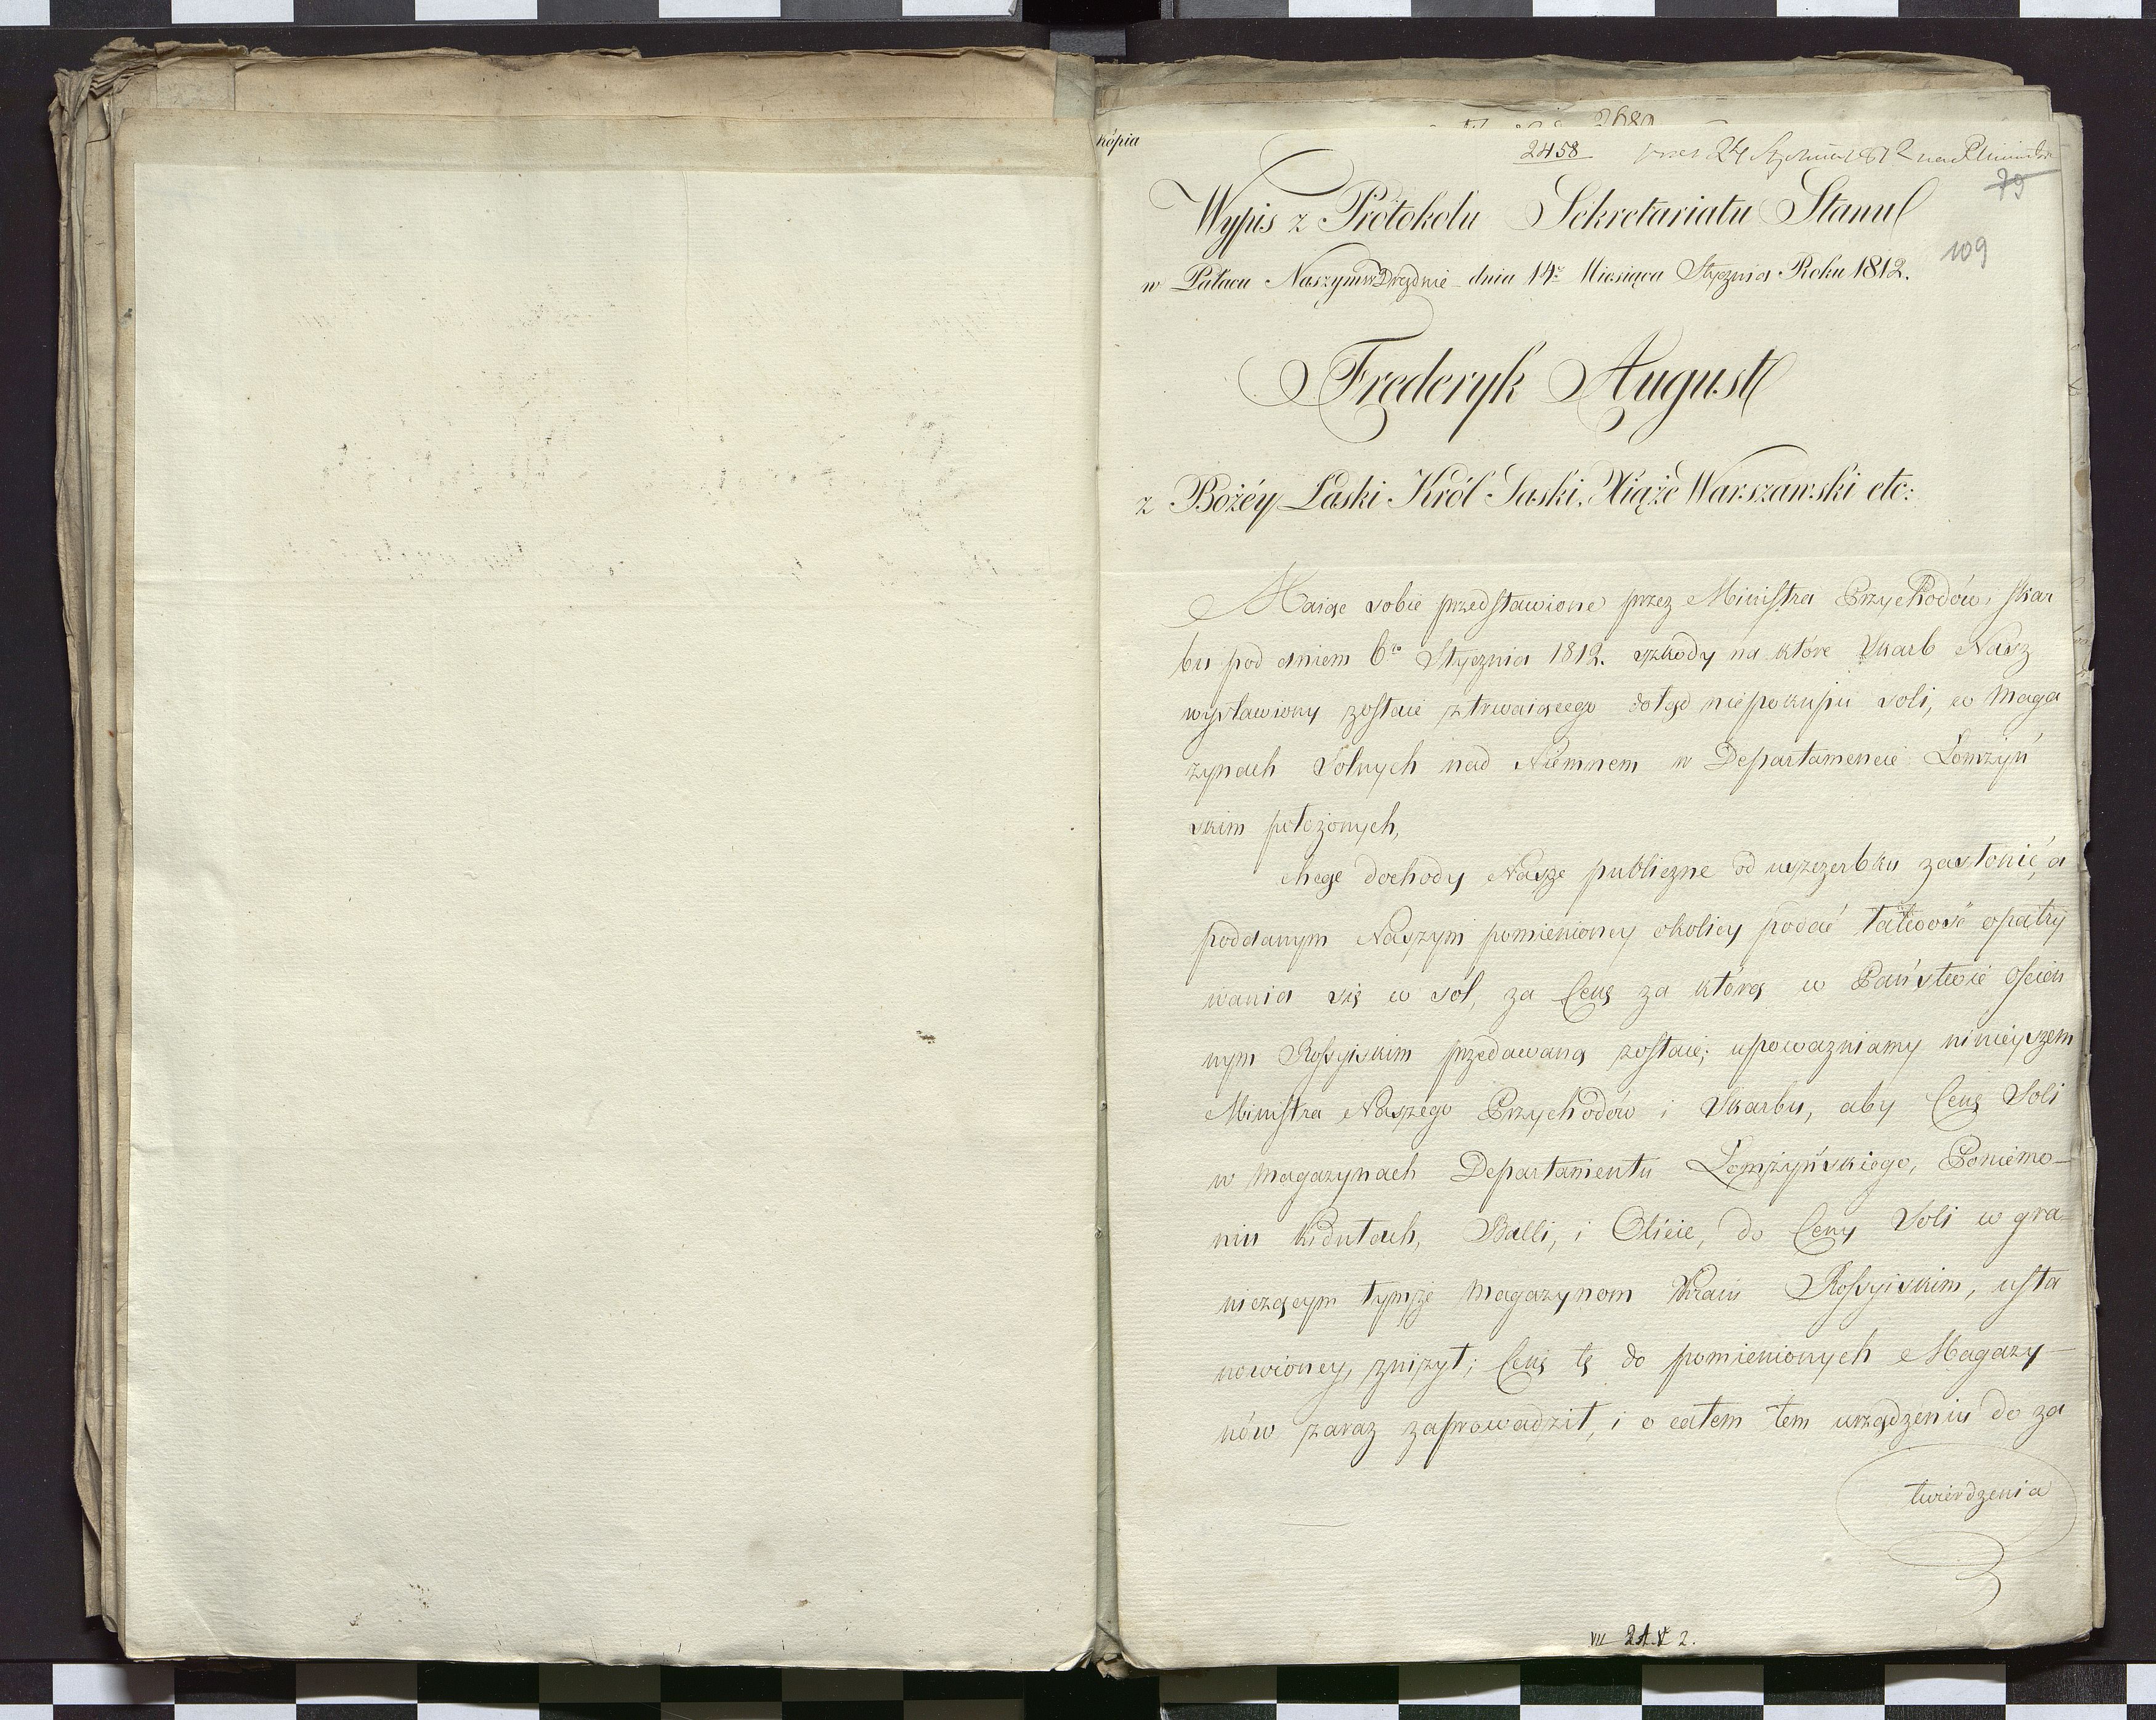 kópia
2689
2458 24 Stycznia 1812
79
Wypis z Protokołu Sekretariatu Stanu
109
w Pałacu Naszym w Dreźnie dnia 14º Miesiąca Stycznia Roku 1812.
Frederyk August
z Bożéy Łaski Król Saski, Xiąże Warszawski etc:
Maiąc sobie przedstawione przez Ministra Przychodów i Skar
bu pod dniem 6º Stycznia 1812. szkody na które Skarb Nasz
wystawiony zostaie z trwaiącego dotąd niepokupu soli, w Maga
zynach Solnych nad Niemnem w Departamencie Łomżyń
skim położonych,
chcąc dochody Nasze publiczne od uszczerbku zasłonić, a
poddanym Naszym pomienioney okolicy podać łatwość opatry
wania się w sól, za Cenę za którą w Państwie Oścień
nym Rossyiskim przedawaną zostaie; upoważniamy ninieyszem
Ministra Naszego Przychodów i Skarbu, aby Cenę Soli
w Magazynach Departamentu Łomżyńskiego, Poniemo-
niu Kidulach, Balli, i Olicie, do Ceny Soli w gra-
niczącym tymże Magazynom Kraiu Rossyiskim, usta
nowioney, zniżył; Cenę tę do pomienionych Magazy-
nów zaraz zaprowadził, i o całem tem urządzeniu do za
twierdzenia
VII 21.V 2.